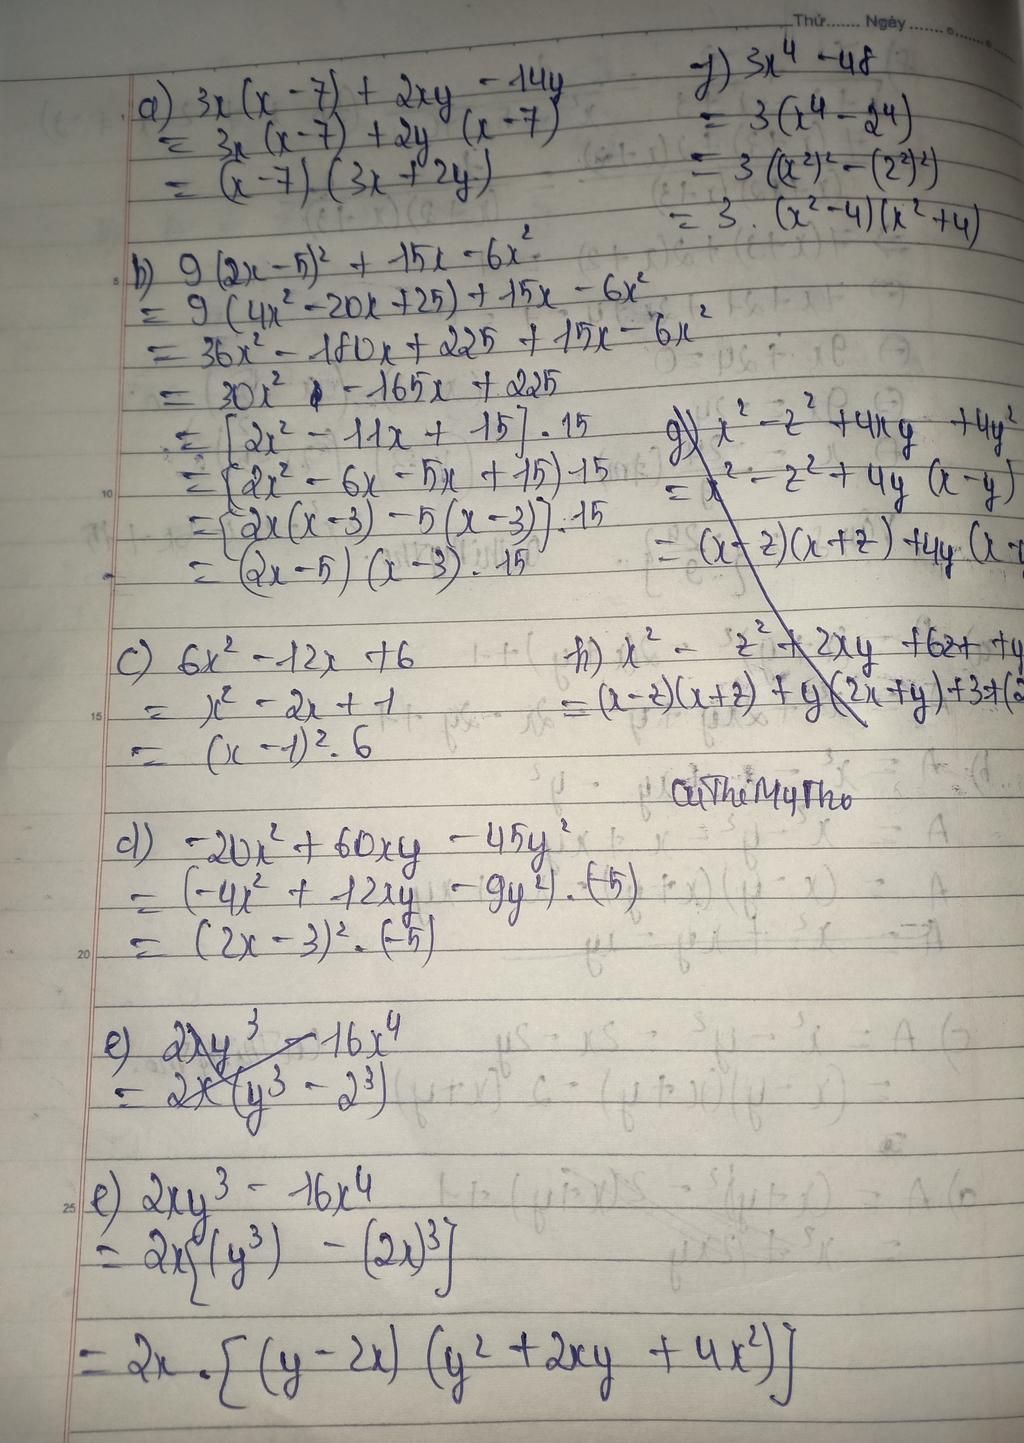 Thứ....... Ngày.......
a) 3x(x - 7) + 2xy - 14y
= 3x(x-7) + 2y (x-7)
= (x-7) (3x+2y)
f) 3x⁴ - 48
= 3(x⁴ - 2⁴)
= 3((x²)² - (2²)²)
= 3 . (x² - 4)(x² + 4)
b) 9(2x-5)² + 15x - 6x²
= 9(4x² - 20x + 25) + 15x - 6x²
= 36x² - 180x + 225 + 15x - 6x²
= 30x² - 165x + 225
= [2x² - 11x + 15] . 15
= [2x² - 6x - 5x + 15) . 15
= [2x(x-3) - 5(x-3)] . 15
= (2x-5) (x-3) . 15
g) x² - z² + 4xy + 4y²
= x² - z² + 4y (x-y)
= (x-z)(x+z) + 4y (x
c) 6x² - 12x + 6
= x² - 2x + 1
= (x-1)² . 6
h) x² - z² + 2xy + 6z + y
= (x-z)(x+z) + y(2x+y) + 3
CuThiMyTho
d) -20x² + 60xy - 45y²
= (-4x² + 12xy - 9y²) . (-5)
= (2x-3)² . (-5)
e) 2xy³ - 16x⁴
= 2x(y³ - 2³)
e) 2xy³ - 16x⁴
= 2x[(y³) - (2x)³]
= 2x . [(y-2x) (y² + 2xy + 4x²)]
5
10
15
20
25